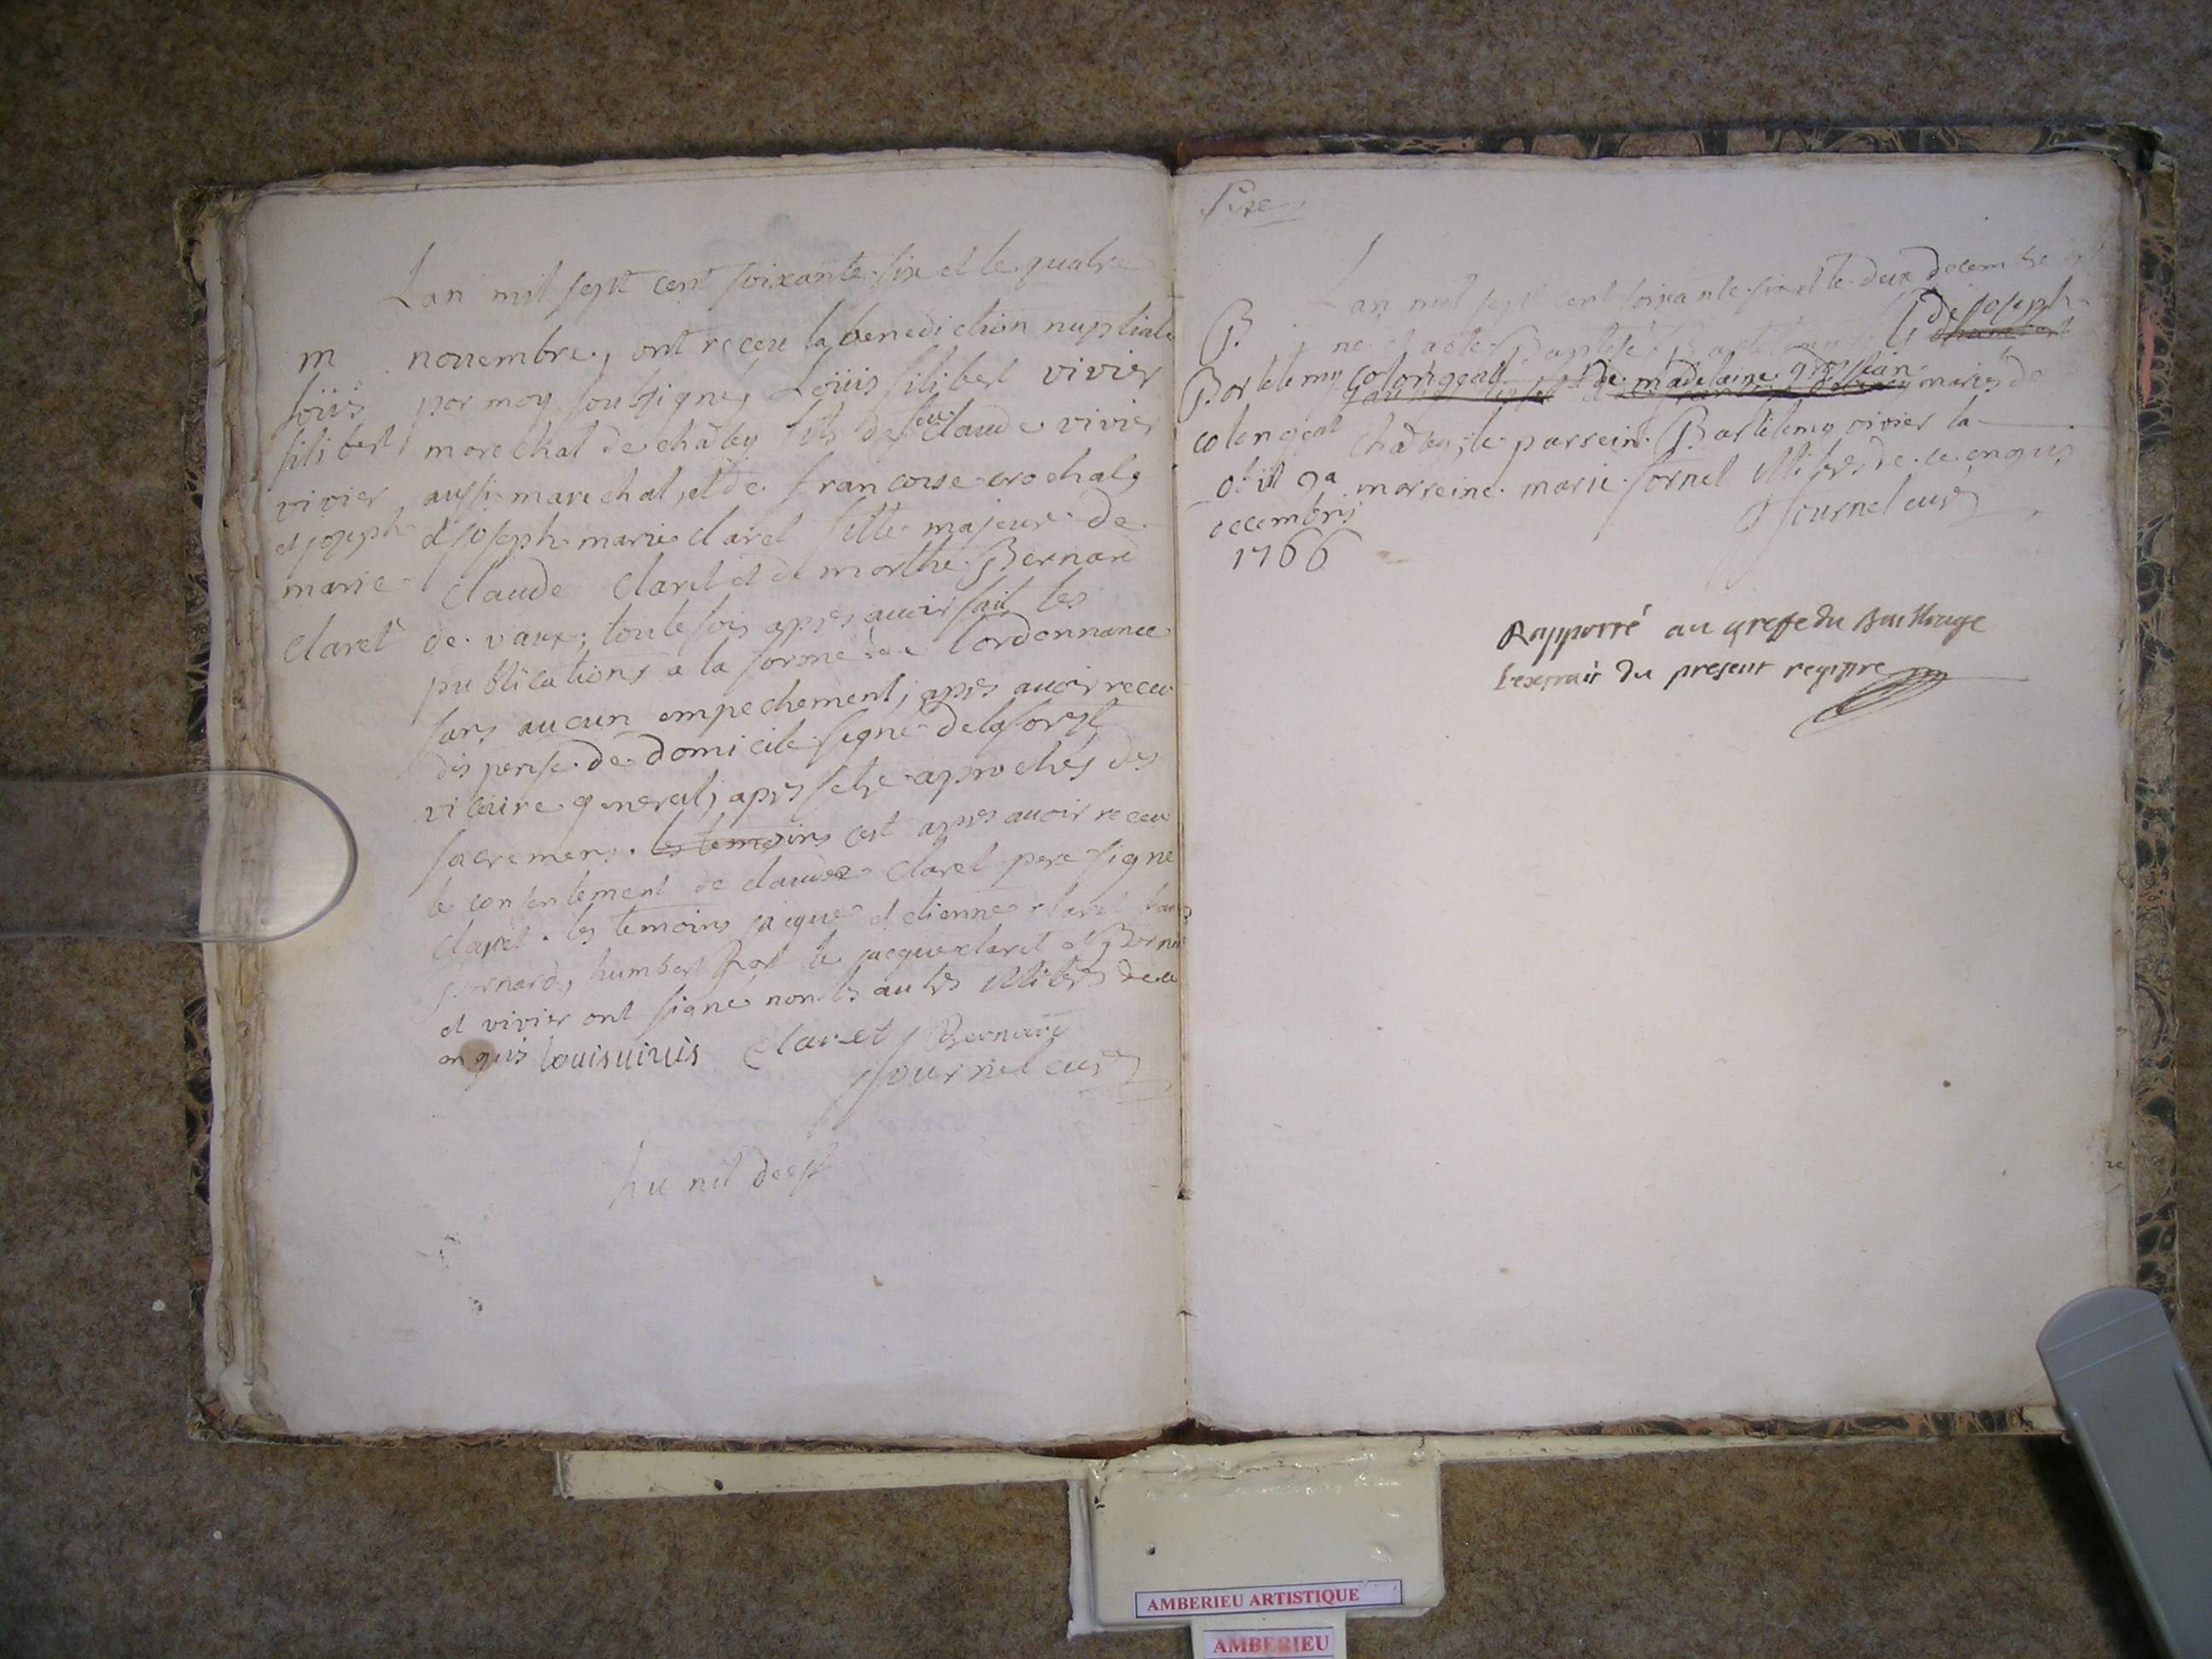 Lan mil sept cent soixante six et le quatre
novembre, ont receu la benediction nuptiale
par moy soubsigne, Loüis filibert vivier
marechal de chatey fils de feu claude vivier
aussi marechal, et de francoise crochat,
et joseph marie claret fille majeur de
claude claret et de marthe Bernard
de vaux, toutefois apres avoir fait les
publications a la forme de lordonnance
sans aucun empechement, apres avoir receu
dispense de domicile signe delaforest
vicaire general, apres setre aproches des
sacremens. les temoins cest apres avoir receu
le consentement de claude claret pere signe
claret. les temoins jacque et etienne claret
Bernard, humbert jacque claret et Bernard
et vivier ont signe non les autres illiteres de ce
enquis louis uiuis Claret Bernard
fournel curé
m
loüis
filibert
vivier
et joseph
marie
claret
hic nil deest
Sixe
Lan mil sept cent soixante six et le deux decembre est
ne et a ete Baptise fils de joseph
colongeat et de madelaine maries de
chatey, le parrein Bartelemy vivier la
marreine marie fornel illiteres de ce enquis
fournel curé
B.
Bartelemy
colongeat
obiit 9a
decembris
1766
Rapporté au greffe du Baillage
Lextrait du present registre
AMBERIEU ARTISTIQUE
AMBERIEU